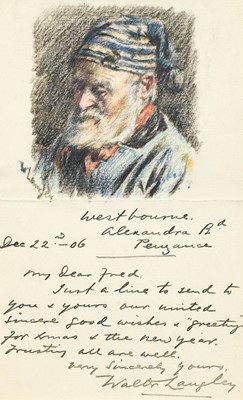 W Langley
Westbourne.
Alexandra Rd
Dec 22nd - 06 Penzance
My Dear Fred.
Just a line to send to
you & yours our united
sincere good wishes & "greeting"
for Xmas & the New Year.
Trusting all are well.
Very Sincerely Yours,
Walter Langley